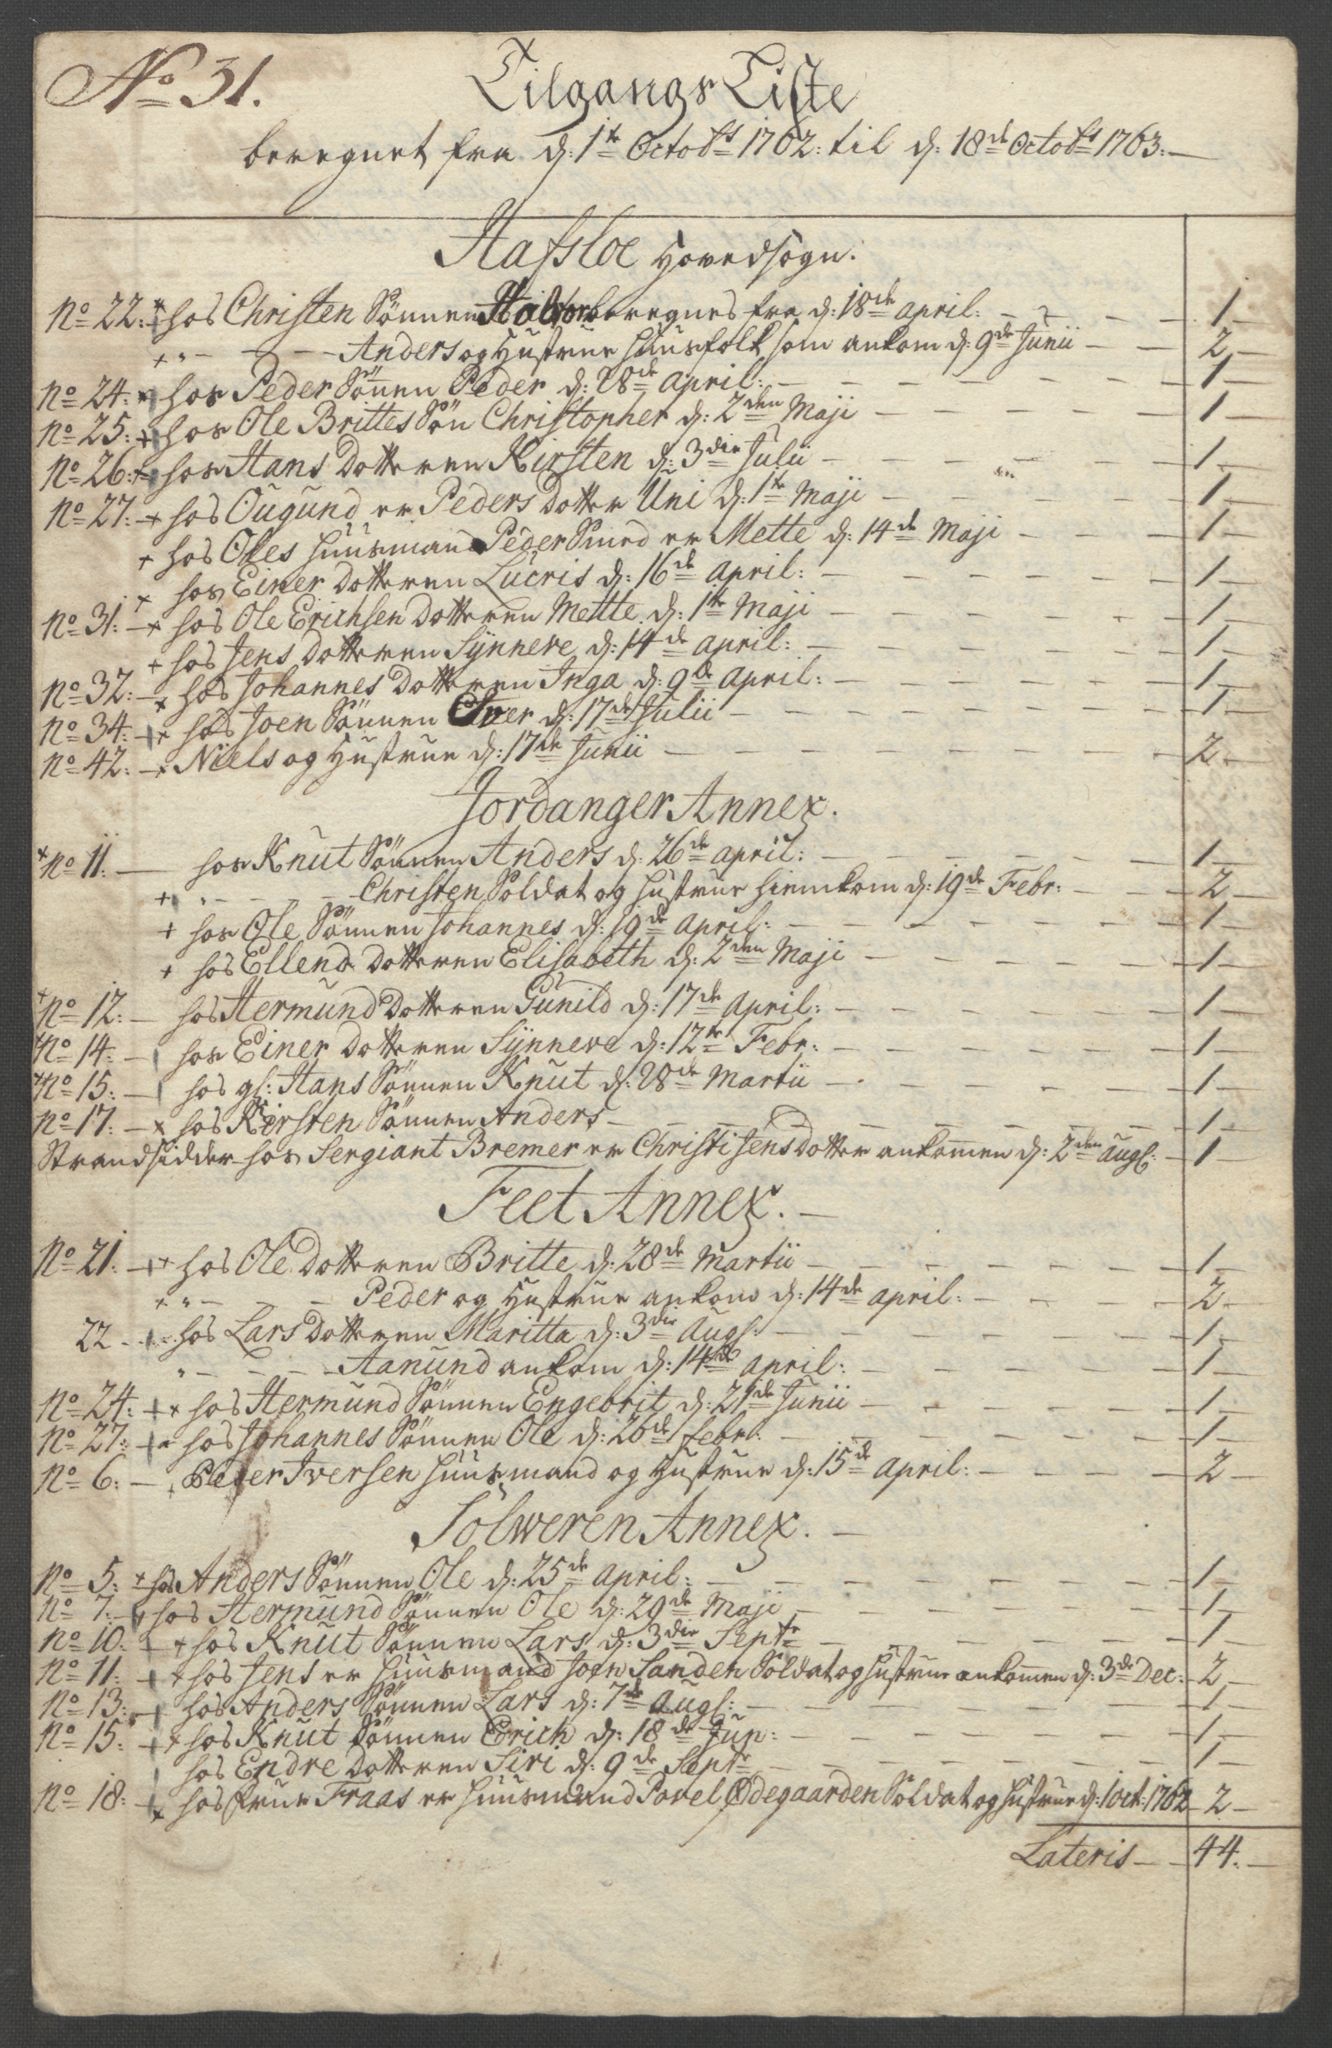 No 31.
Tilgangs Liste
beregnet fra d: 1te Octobr 1762: til d: 18de Octobr 1763:
Hafsloe Hovedsogn.
No 22: hos Christen Sönnen Halvor beregnes fra d: 18de april: 1
" Anders og Hustrue Huusfolk som ankom d: 9de Junii 2
No 24: hos Peder Sönnen Peder d: 28de april: 1
No 25: hos Ole Brittes Søn Christopher d: 2den Maji 1
No 26: hos Hans Dotteren Kirsten d: 3die Julii 1
No 27: hos Ougund er Peders Dotter Uni d: 1te Maji 1
hos Oles Huusmand Peder Smed er Mette d: 14de Maji 1
hos Einer Dotteren Lucris d: 16de april: 1
No 31: hos Ole Erichsen Dotteren Mette d: 1te Maji 1
hos Jens Dotteren Synneve d: 14de april: 1
No 32: hos Johannes Dotteren Inga d: 9de april: 1
No 34: hos Joen Sönnen Iver d: 17de Julii 1
No 42: Niels og Hustrue d: 17de Junii 2
Jordanger Annex.
No 11: hos Knut Sönnen Anders d: 26de april: 1
" Christen Soldat og Hustrue hiemkom d: 19de Febr: 2
hos Ole Sönnen Johannes d: 19de april: 1
hos Ellend Dotteren Elisabeth d: 2den Maji 1
No 12: hos Hermund Dotteren Gunild d: 17de april: 1
No 14: hos Einer Dotteren Synneve d: 12te Febr: 1
No 15: hos gl: Hans Sönnen Knut d: 28de Martii 1
No 17: hos Kirsten Sönnen Anders 1
Strandsidder hos Sergiant Bremer er Christi Jensdotter ankommen d: 2den Augs: 1
Feet Annex.
No 21: hos Ole Dotteren Britte d: 28de Martii 1
" Peder og Hustrue ankom d: 14de april: 2
22 hos Lars Dotteren Maritta d: 3die Augs: 1
" Aanund ankom d: 14de april: 1
No 24: hos Hermund Sönnen Engebrit d: 21de Junii 1
No 27: hos Johannes Sönnen Ole d: 26de febr: 1
No 6: Peder Iversen Huusmand og Hustrue d: 15de april: 2
Solweren Annex.
No 5: hos Anders Sönnen Ole d: 25de april: 1
No 7: hos Hermund Sönnen Ole d: 29de Maji 1
No 10: hos Knut Sönnen Lars d: 3die Septr 1
No 11: hos Jens er Huusmand Joen Sanden Soldat og Hustrue ankommen d: 3de Dec: 2
No 13: hos Anders Sönnen Lars d: 7de Augs: 1
No 15: hos Knut Sönnen Erich d: 18de Jun: 1
hos Endre Dotteren Siri d: 9de Septr 1
No 18: hos frue Fraas er Huusmand Povel Ødegaarden Soldat og Hustrue d: 1 oct: 1762 2
Lateris 44.